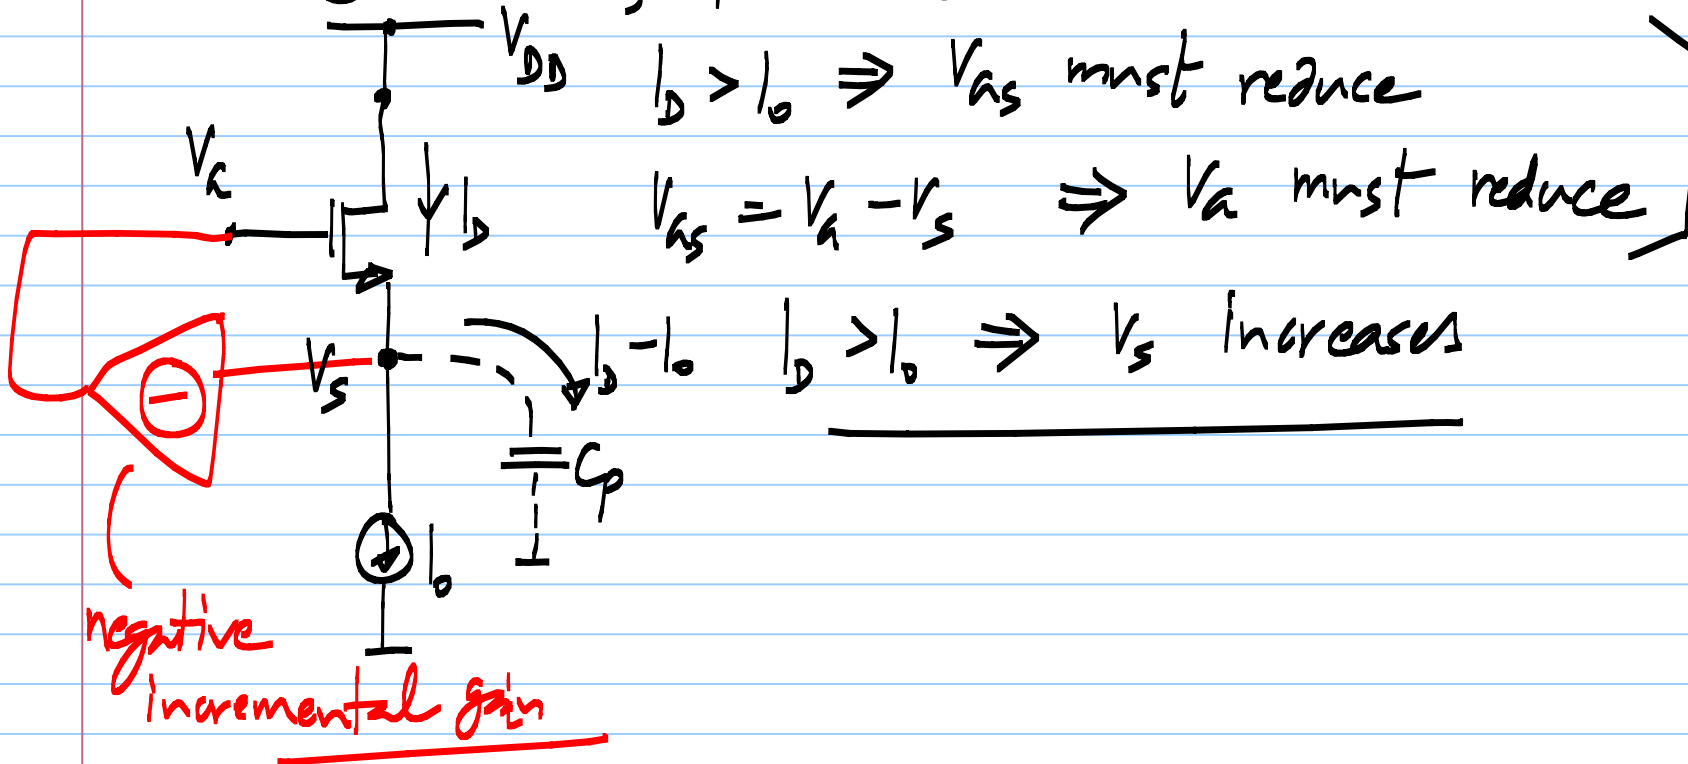 V_DD
I_D > I_0 ⇒ V_GS must reduce
V_G
I_D
V_GS = V_G - V_S ⇒ V_G must reduce
V_S
I_D - I_0
I_D > I_0 ⇒ V_S increases
C_p
I_0
negative
incremental gain